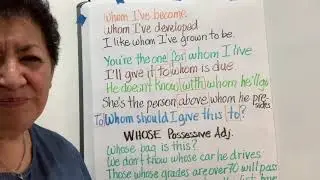 Whom I've become.
Whom I've developed
I like whom I've grown to be.
You're the one for whom I live.
I'll give it to whom is due.
He doesn't know with whom he'll go
She's the person above whom he presides
To Whom should I give this to?
WHOSE Possessive Adj.
Whose bag is this?
We don't know whose car he drives
Those whose grades are over 70 will pass